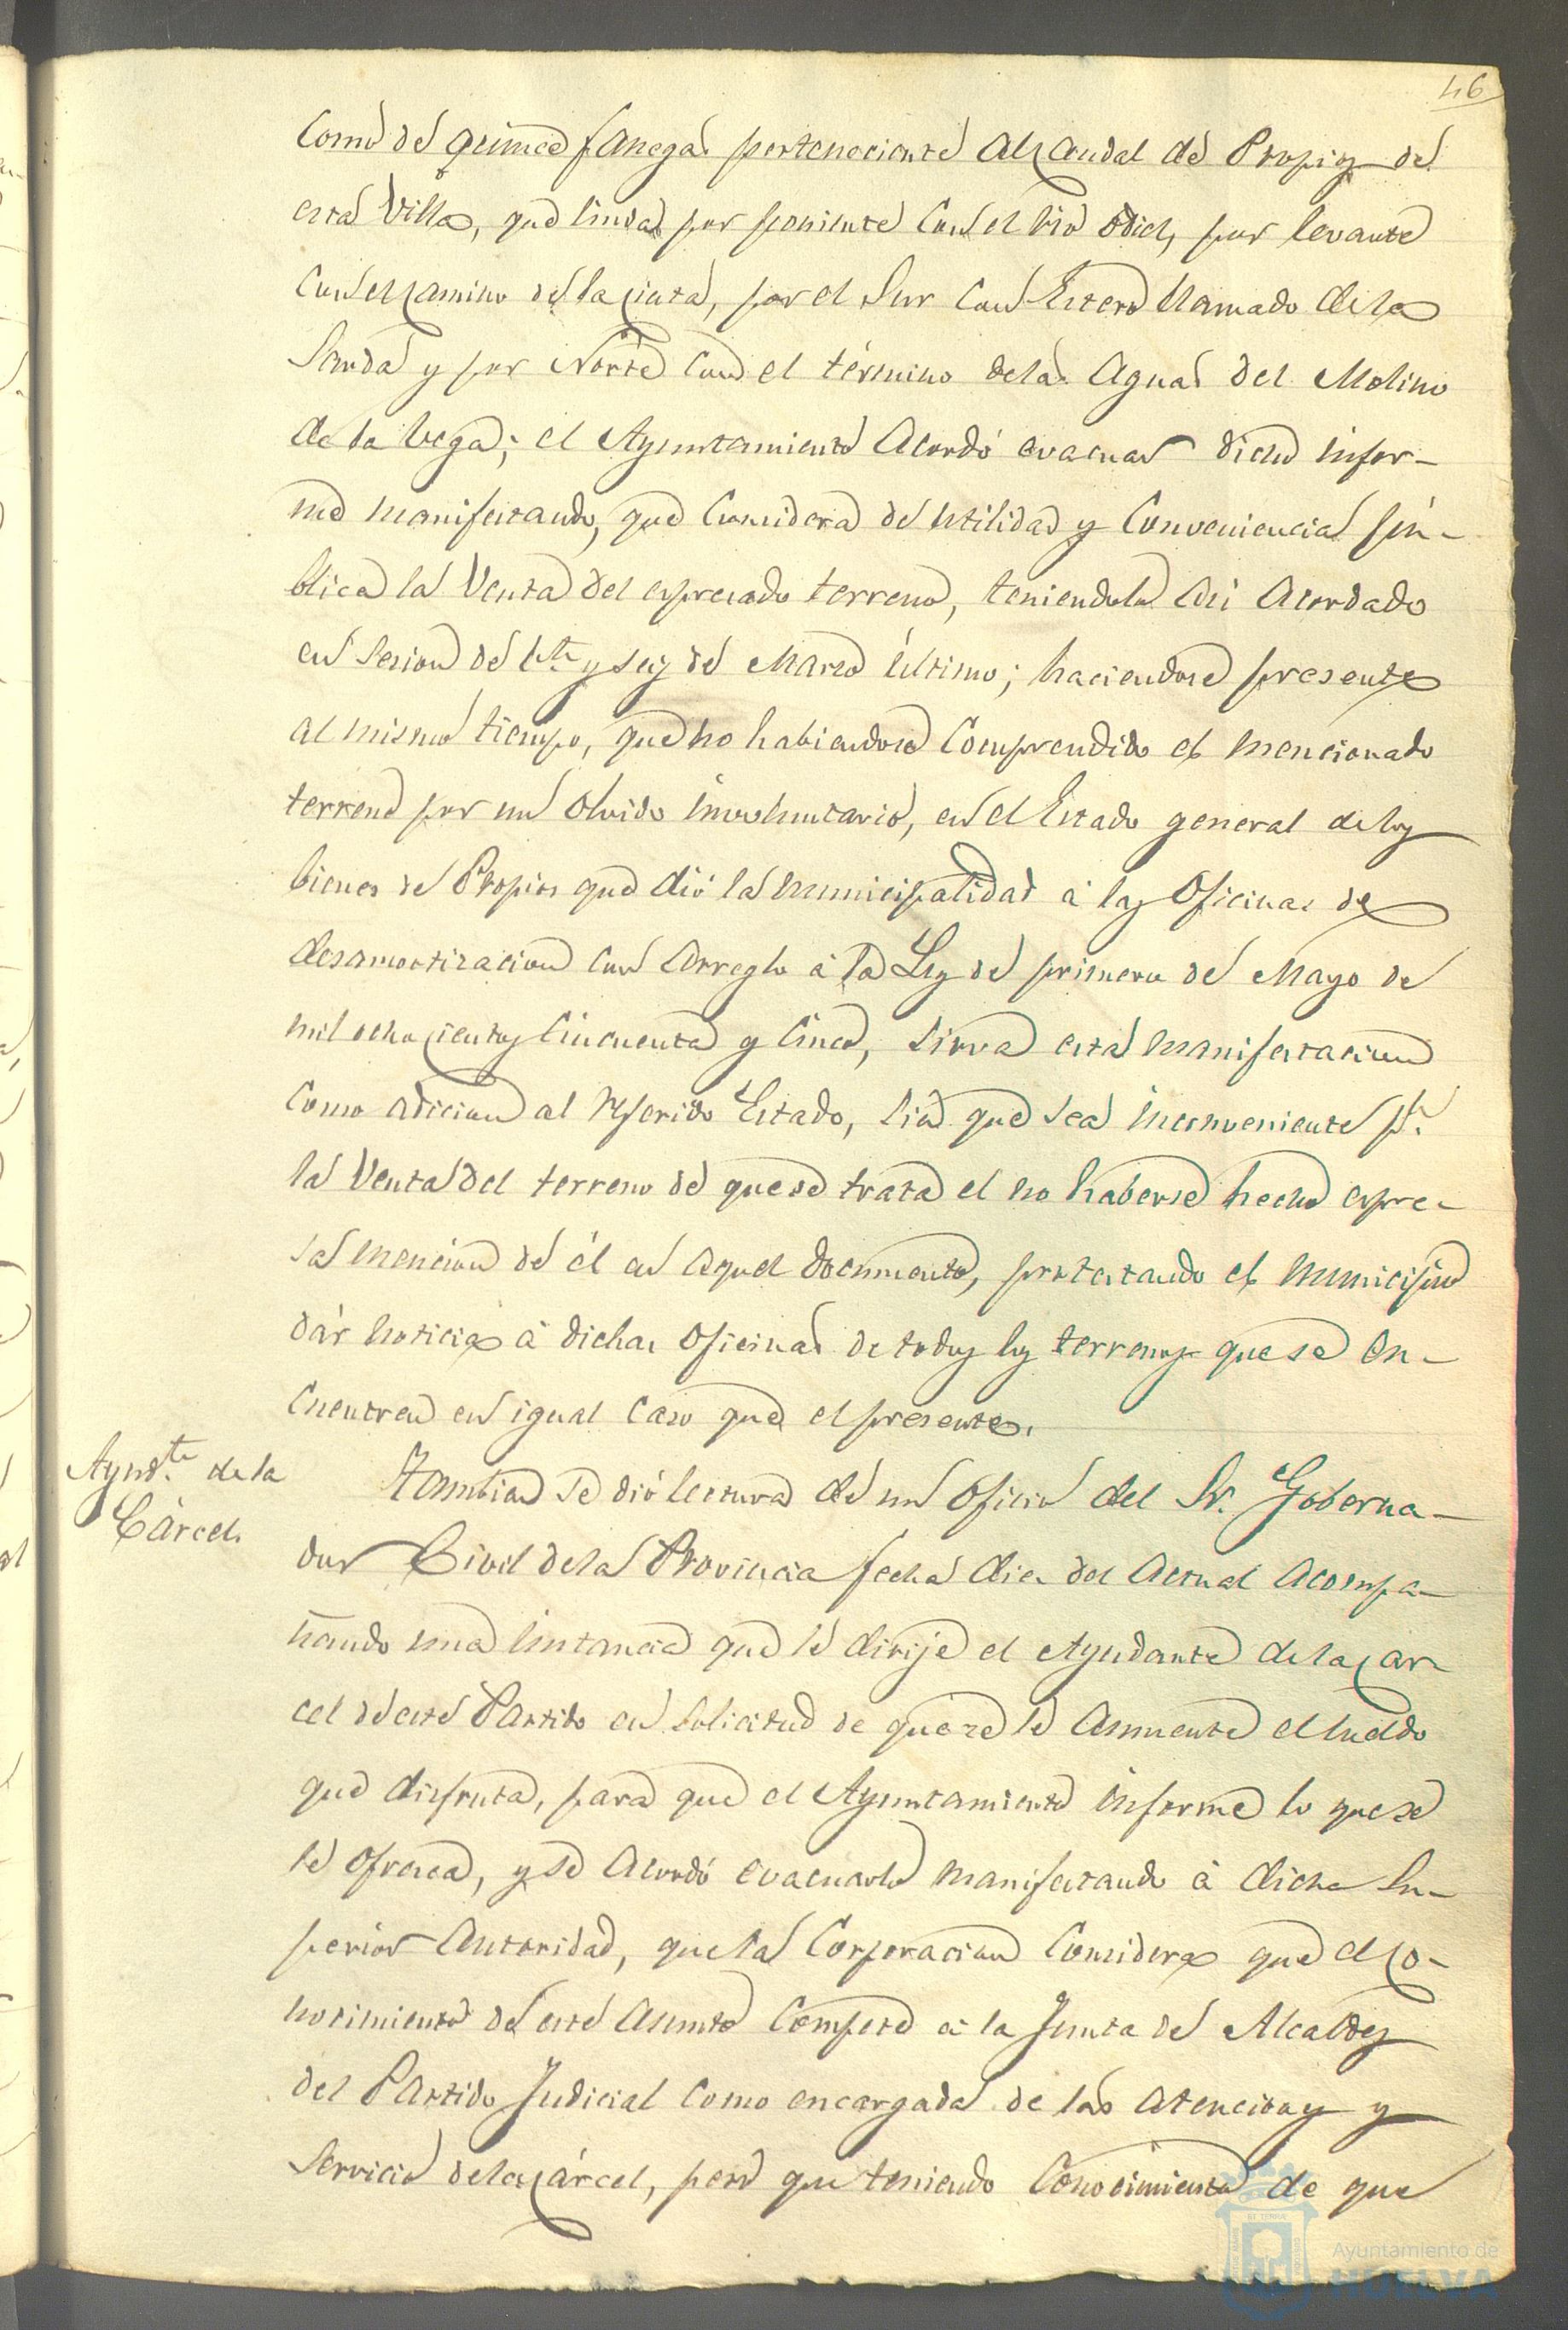 46
como de quince fanegas perteneciente al caudal de Propios de
esta Villa, que linda por poniente con el rio Odiel, por levante
con el camino de la cinta, por el Sur con Estero llamado de la
 y por Norte con el término de las Aguas del Molino
de la Vega; el Ayuntamiento Acordó evacuar dicho infor-
me manifestando, que considera de utilidad y conveniencia pú-
blica la Venta del espresado terreno, teniendolo asi Acordado
en Sesion de vte y seis de Marzo último; haciendose presente
al mismo tiempo, que no habiendose comprendido el mencionado
terreno por un olvido involuntario, en el Estado general de los
bienes de Propios que dió la municipalidad á las Oficinas de
desamortizacion con arreglo á la Ley de primero de Mayo de
mil ochocientos cincuenta y cinco, sirva esta manifestacion
como adicion al referido Estado, sin que sea inconveniente pa.
la Venta del terreno de que se trata el no haberse hecho espre-
sa mencion de él en aquel documento, protestando el municipio
dár noticia á dichas oficinas de todos los terrenos que se en-
cuentren en igual caso que el presente.
Aydte. de la
Cárcel.
Tambien se dió lectura de un oficio del Sr. Goberna-
dor Civil de la Provincia fecha diez del actual acompa-
ñando una instancia que le dirije el Ayudante de la car-
cel de este Partido en solicitud de que se le aumente el sueldo
que disfruta, para que el Ayuntamiento informe lo que se
le ofrezca, y se acordó evacuarlo manifestando á dicha Su-
perior Autoridad, que la Corporacion considera que el co-
nocimiento de este asunto compete á la Junta de Alcaldes
del Partido Judicial como encargada de las atenciones y
servicio de la cárcel, pero que teniendo conocimiento de que
Ayuntamiento de
HUELVA